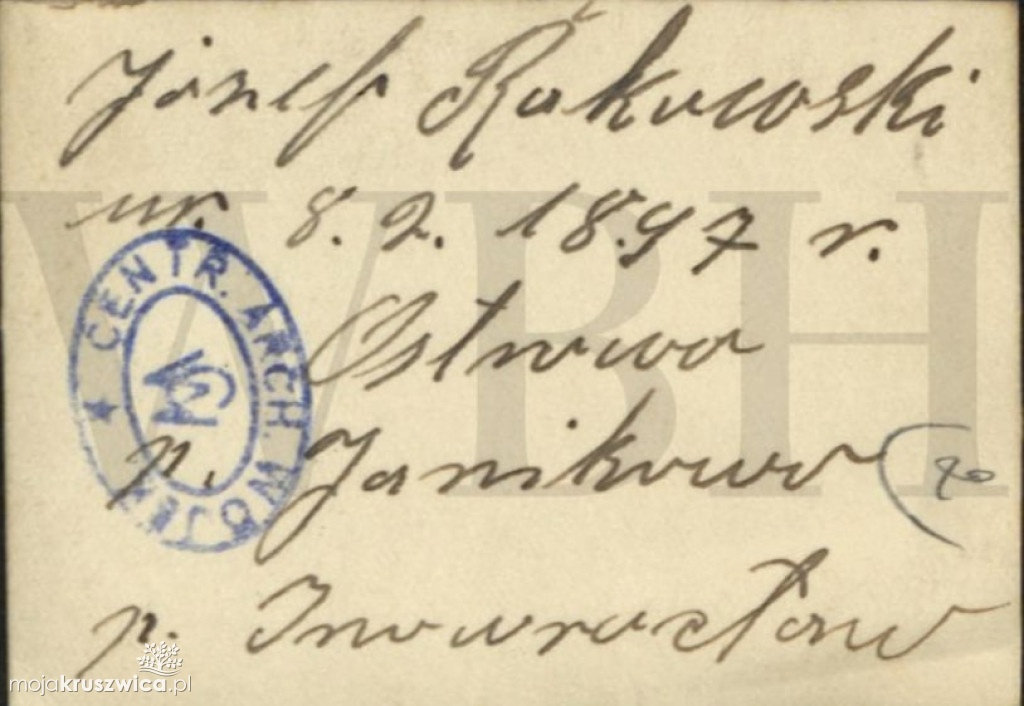 Józef Rakowski
ur. 8. 2. 1897 r.
Ostrowo
p. Janikowo
p. Inowrocław
CENTR. ARCH. WOJSK
WBH
mojakruszwica.pl